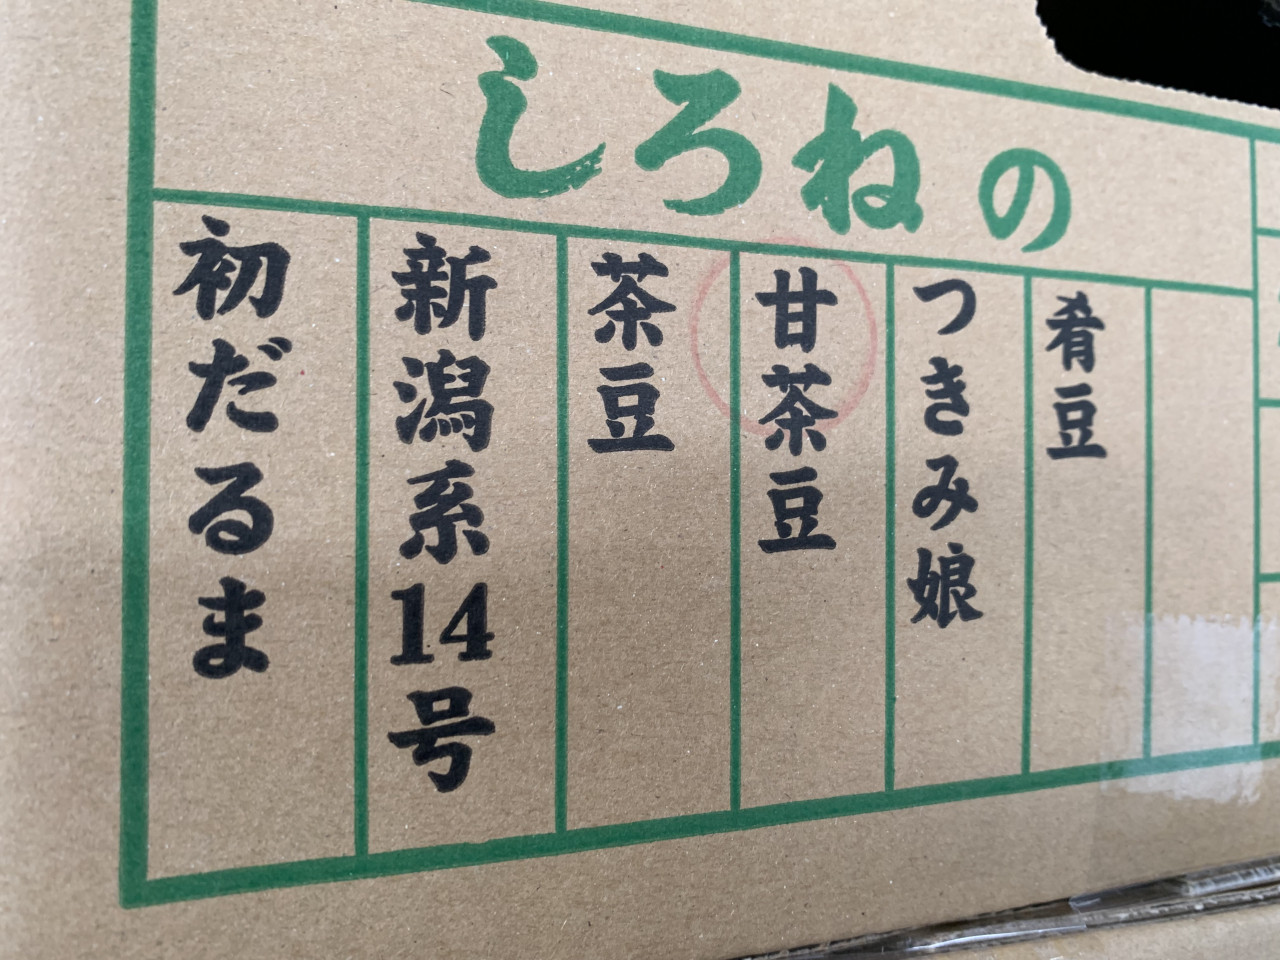 しろねの
初だるま
新潟系14号
茶豆
甘茶豆
つきみ娘
肴豆